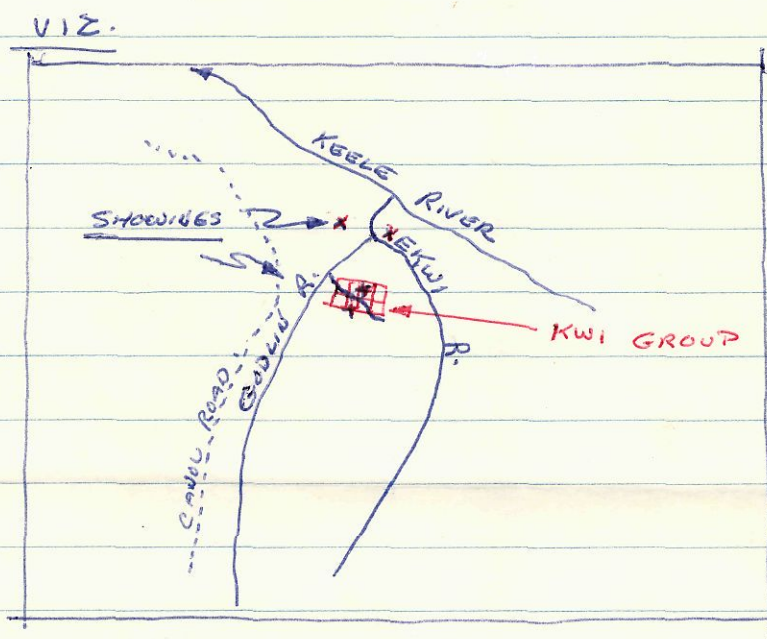 VIZ.
KEELE RIVER
SHOWINGS
EKWI R.
GODLIN R.
KWI GROUP
CANOL ROAD